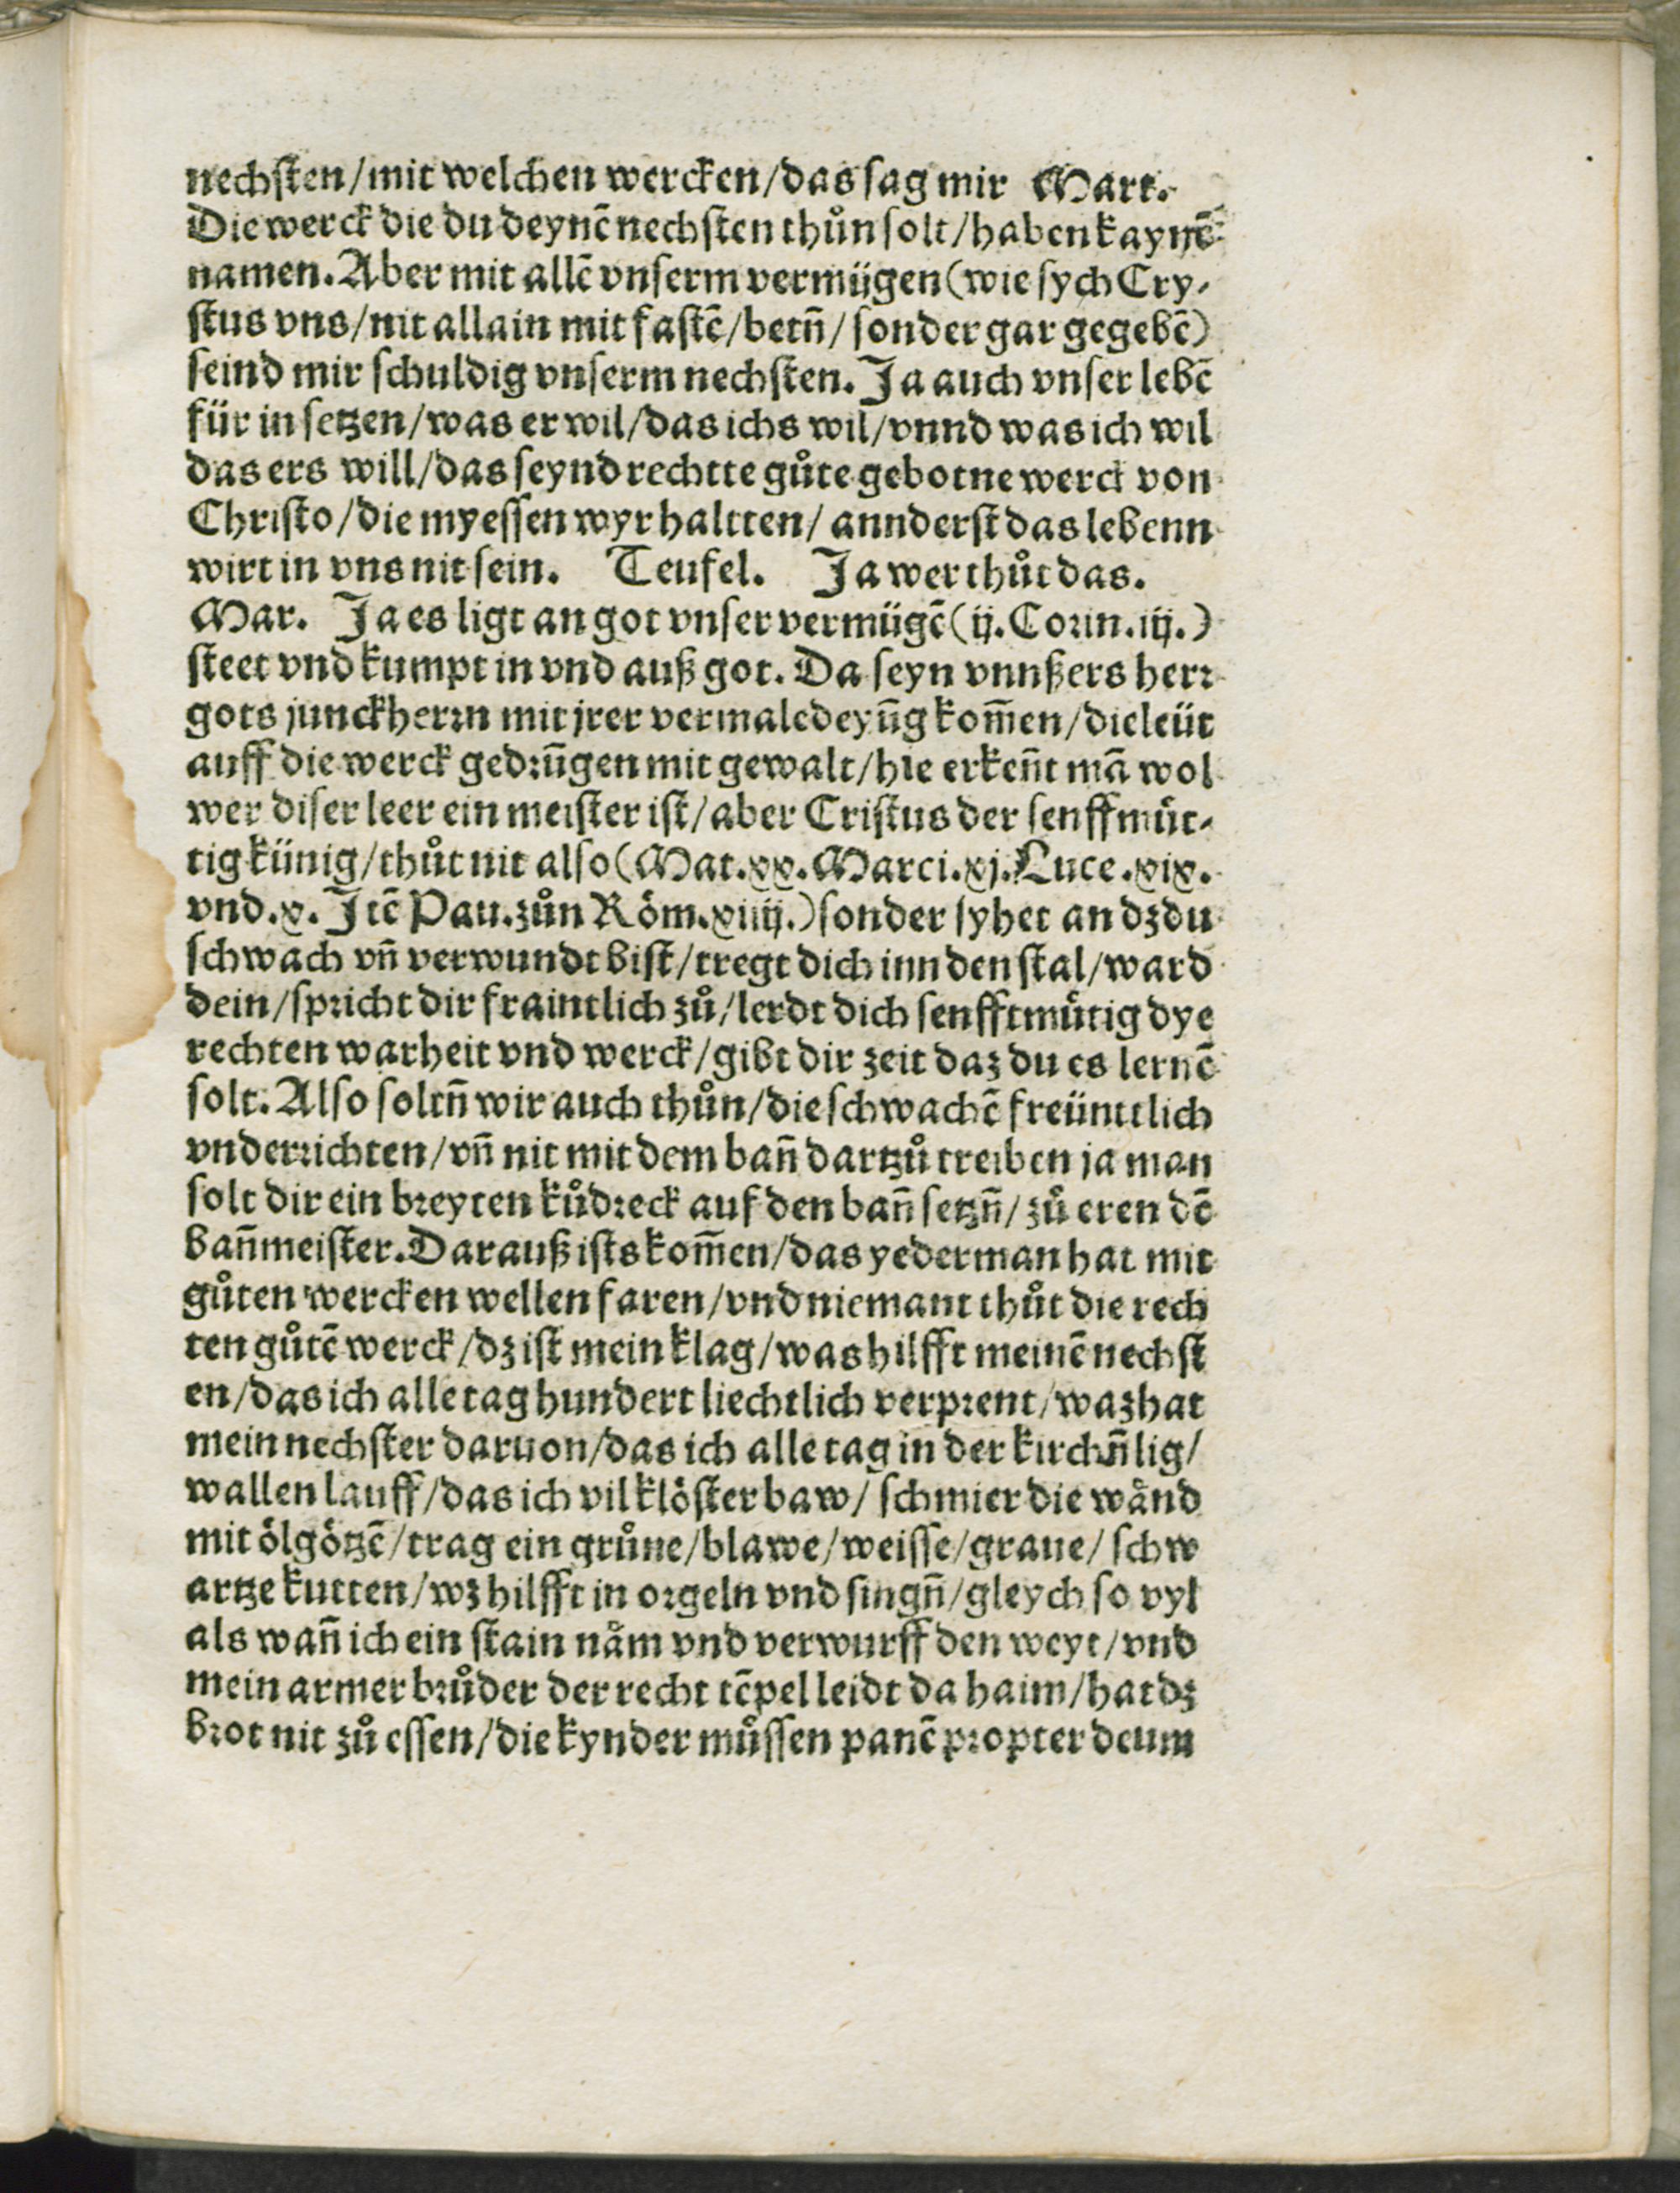 nechſten/mit welchen wercken/das ſag mir Mart.
Die werck die du deynē nechſten thůn ſolt/haben kaynē
namen. Aber mit allē vnſerm vermügen (wie ſych Cry⸗
ſtus vns/nit allain mit faſtē/betn̄/ſonder gar gegebē)
ſeind mir ſchuldig vnſerm nechſten. Ja auch vnſer lebē
für in ſetzen/was er wil/das ichs wil/vnnd was ich wil
das ers will/das ſeynd rechtte gůte gebotne werck von
Chriſto/die myeſſen wyr haltten/annderſt das lebenn
wirt in vns nit ſein. Teufel. Ja wer thůt das.
Mar. Ja es ligt an got vnſer vermügē (ij. Corin. iij.)
ſteet vnd kumpt in vnd auß got. Da ſeyn vnnßers herr
gots junckherrn mit jrer vermaledeyūg kom̄en/die leüt
auff die werck gedrūgen mit gewalt/hie erken̄t mā wol
wer diſer leer ein meiſter iſt/aber Criſtus der ſenffmüt⸗
tig künig/thůt nit alſo (Mat. xx. Marci. xj. Luce. xix.
vnd. x. Jtē Pau. zůn Röm. xiiij.) ſonder ſyhet an dz du
ſchwach vn̄ verwundt biſt/tregt dich inn den ſtal/ward
dein/ſpricht dir fraintlich zů/lerdt dich ſenfftmütig dye
rechten warheit vnd werck/gibt dir zeit daz du es lernē
ſolt. Alſo ſoltn̄ wir auch thůn/die ſchwachē freünttlich
vnderrichten/vn̄ nit mit dem ban̄ dartzů treiben ja man
ſolt dir ein breyten kůdreck auf den ban̄ ſetzn̄/zů eren dē
ban̄meiſter. Darauß iſts kom̄en/das yederman hat mit
gůten wercken wellen faren/vnd niemant thůt die rech
ten gůtē werck/dz iſt mein klag/was hilfft meinē nechſt
en/das ich alle tag hundert liechtlich verprent/waz hat
mein nechſter daruon/das ich alle tag in der kirchn̄ lig/
wallen lauff/das ich vil klöſter baw/ſchmier die wänd
mit ölgötzē/trag ein grůne/blawe/weiſſe/graue/ſchw
artze kutten/wz hilfft in orgeln vnd ſingn̄/gleych ſo vyl
als wan̄ ich ein ſtain näm vnd verwurff den weyt/vnd
mein armer brůder der recht tēpel leidt da haim/hat dz
brot nit zů eſſen/die kynder můſſen panē propter deum